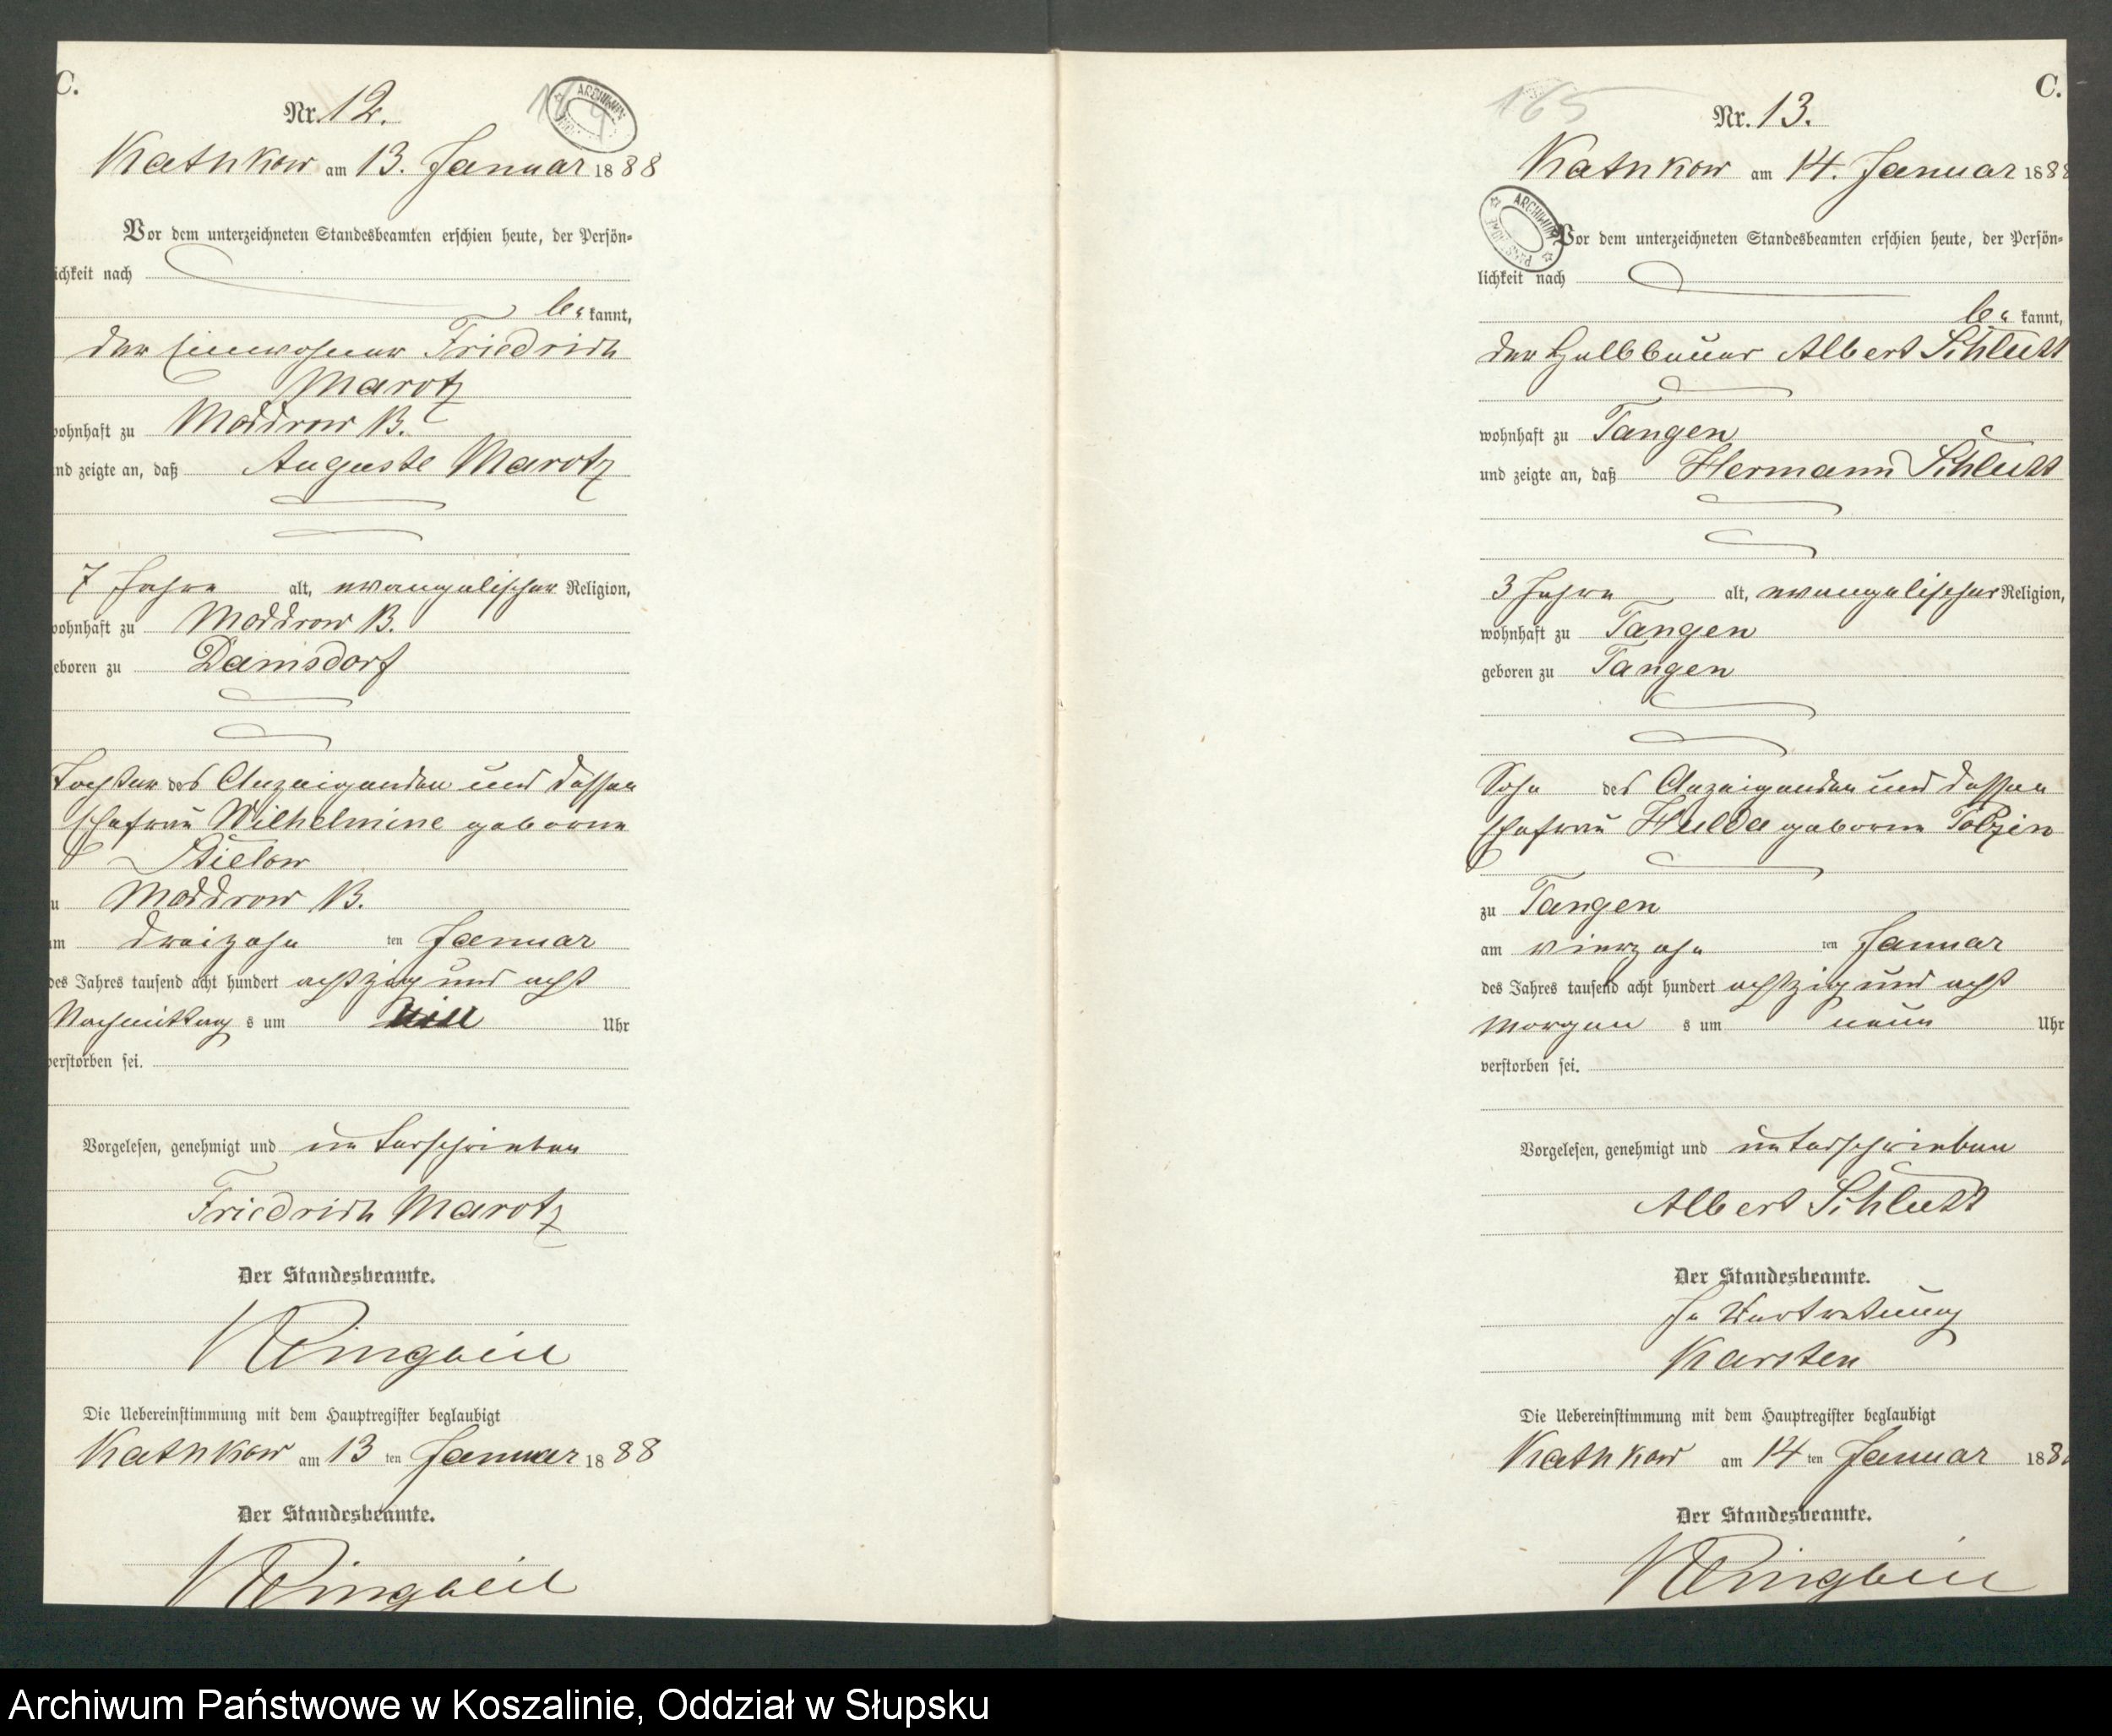 C.
Nr. 12.
Kathkow am 13. Januar 1888
Vor dem unterzeichneten Standesbeamten erschien heute, der Persön-
ichkeit nach
be- kannt,
der Einwohner Friedrich
Marotz
wohnhaft zu Moddrow B.
und zeigte an, daß Auguste Marotz
7 Jahre alt, evangelischer Religion,
wohnhaft zu Moddrow B.
eboren zu Damsdorf
Tochter des Anzeigenden und dessen
Ehefrau Wilhelmine geborne
Stielow
u Moddrow B.
am dreizehn ten Januar
des Jahres tausend acht hundert achtzig und acht
Nachmittag s um Uhr
verstorben sei.
Vorgelesen, genehmigt und unterschrieben
Friedrich Marotz
Der Standesbeamte.
Die Uebereinstimmung mit dem Hauptregister beglaubigt
Kathkow am 13 ten Januar 1888
Der Standesbeamte.
C.
165
Nr. 13.
Kathkow am 14. Januar 1888
ARCHIWUM
Vor dem unterzeichneten Standesbeamten erschien heute, der Persön-
lichkeit nach
be- kannt,
der Halbbauer Albert Schlutt
wohnhaft zu Tangen
und zeigte an, daß Hermann Schlutt
3 Jahre alt, evangelischer Religion,
wohnhaft zu Tangen
geboren zu Tangen
Sohn des Anzeigenden und dessen
Ehefrau Hulda geborne Polzin
zu Tangen
am vierzehn ten Januar
des Jahres tausend acht hundert achtzig und acht
Morgen s um neun Uhr
verstorben sei.
Vorgelesen, genehmigt und unterschrieben
Albert Schlutt
Der Standesbeamte.
In Vertretung
Karsten
Die Uebereinstimmung mit dem Hauptregister beglaubigt
Kathkow am 14 ten Januar 188
Der Standesbeamte.
Archiwum Państwowe w Koszalinie, Oddział w Słupsku